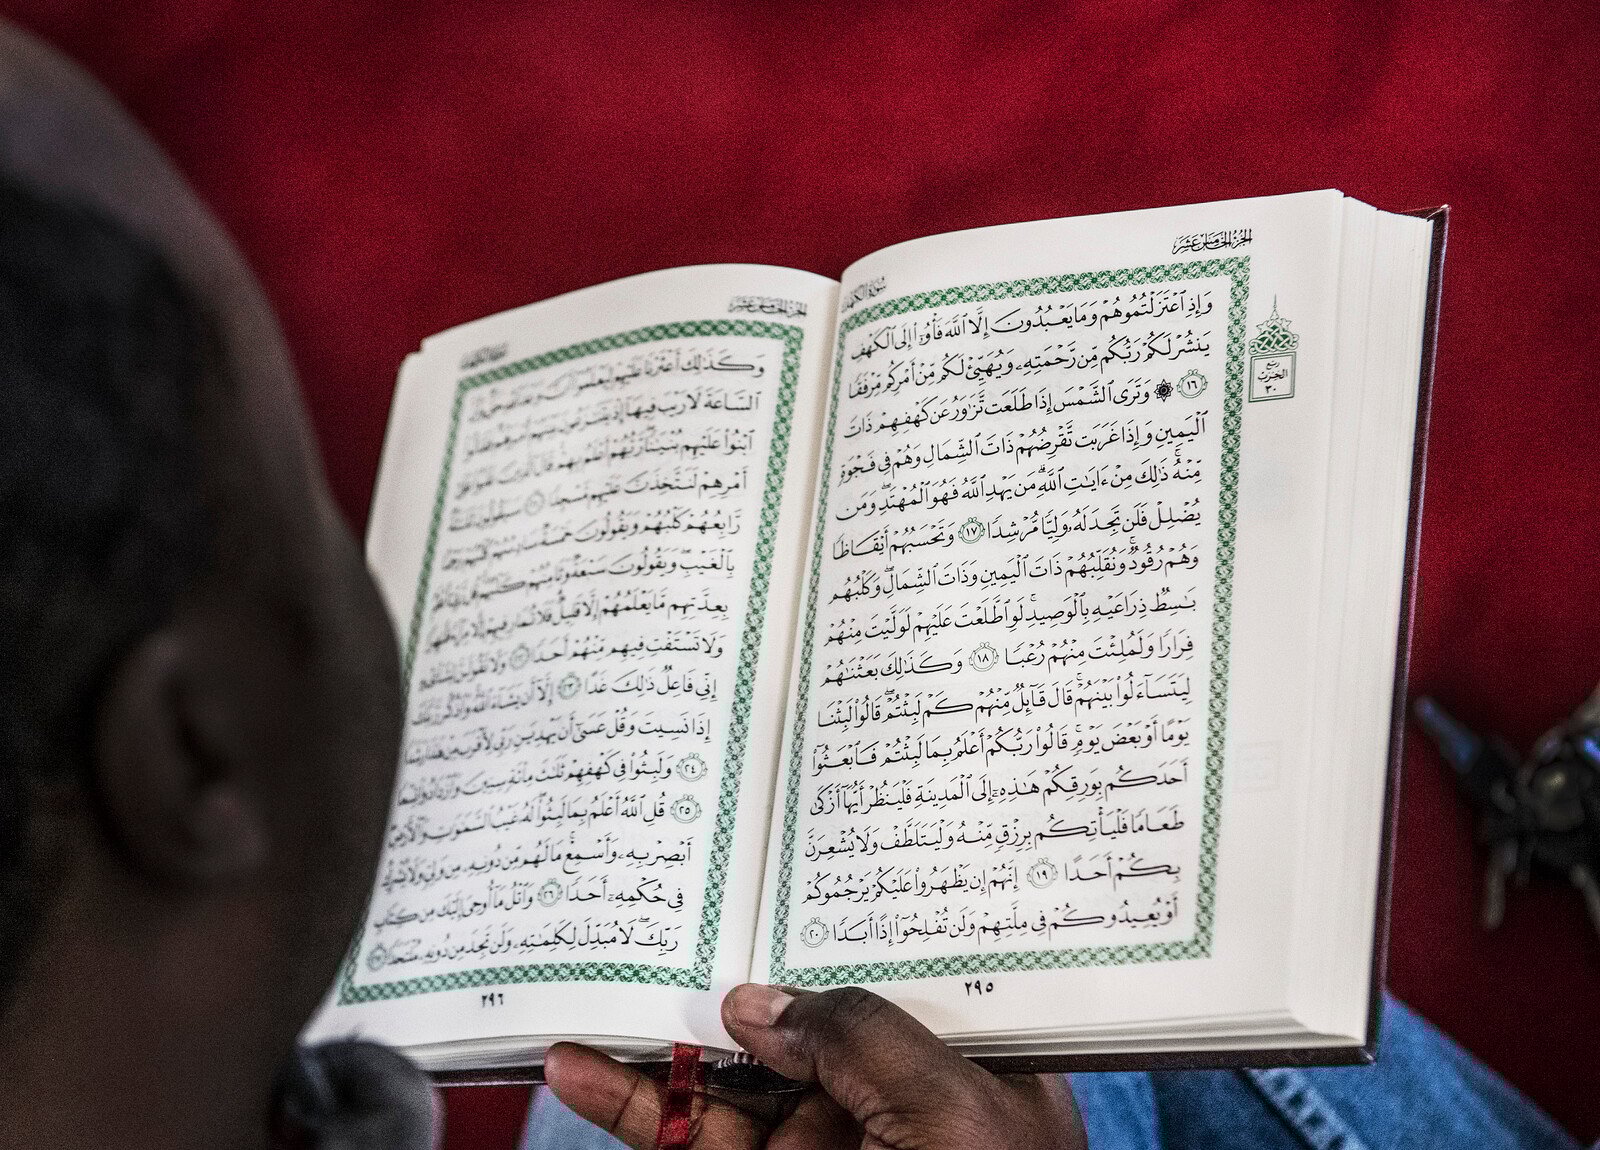 الجزء الخامس عشر
سورة الكهف
وَإِذِ ٱعْتَزَلْتُمُوهُمْ وَمَا يَعْبُدُونَ إِلَّا ٱللَّهَ فَأْوُۥٓا۟ إِلَى ٱلْكَهْفِ
يَنشُرْ لَكُمْ رَبُّكُم مِّن رَّحْمَتِهِۦ وَيُهَيِّئْ لَكُم مِّنْ أَمْرِكُم مِّرْفَقًا
١٦ ۞ وَتَرَى ٱلشَّمْسَ إِذَا طَلَعَت تَّزَٰوَرُ عَن كَهْفِهِمْ ذَاتَ
ٱلْيَمِينِ وَإِذَا غَرَبَت تَّقْرِضُهُمْ ذَاتَ ٱلشِّمَالِ وَهُمْ فِى فَجْوَةٍ
مِّنْهُ ۚ ذَٰلِكَ مِنْ ءَايَٰتِ ٱللَّهِ ۗ مَن يَهْدِ ٱللَّهُ فَهُوَ ٱلْمُهْتَدِ ۖ وَمَن
يُضْلِلْ فَلَن تَجِدَ لَهُۥ وَلِيًّا مُّرْشِدًا ١٧ وَتَحْسَبُهُمْ أَيْقَاظًا
وَهُمْ رُقُودٌ ۚ وَنُقَلِّبُهُمْ ذَاتَ ٱلْيَمِينِ وَذَاتَ ٱلشِّمَالِ ۖ وَكَلْبُهُم
بَٰسِطٌ ذِرَاعَيْهِ بِٱلْوَصِيدِ ۚ لَوِ ٱطَّلَعْتَ عَلَيْهِمْ لَوَلَّيْتَ مِنْهُمْ
فِرَارًا وَلَمُلِئْتَ مِنْهُمْ رُعْبًا ١٨ وَكَذَٰلِكَ بَعَثْنَٰهُمْ
لِيَتَسَآءَلُوا۟ بَيْنَهُمْ ۚ قَالَ قَآئِلٌ مِّنْهُمْ كَمْ لَبِثْتُمْ ۖ قَالُوا۟ لَبِثْنَا
يَوْمًا أَوْ بَعْضَ يَوْمٍ ۚ قَالُوا۟ رَبُّكُمْ أَعْلَمُ بِمَا لَبِثْتُمْ فَٱبْعَثُوٓا۟
أَحَدَكُم بِوَرِقِكُمْ هَٰذِهِۦٓ إِلَى ٱلْمَدِينَةِ فَلْيَنظُرْ أَيُّهَآ أَزْكَىٰ
طَعَامًا فَلْيَأْتِكُم بِرِزْقٍ مِّنْهُ وَلْيَتَلَطَّفْ وَلَا يُشْعِرَنَّ
بِكُمْ أَحَدًا ١٩ إِنَّهُمْ إِن يَظْهَرُوا۟ عَلَيْكُمْ يَرْجُمُوكُمْ
أَوْ يُعِيدُوكُمْ فِى مِلَّتِهِمْ وَلَن تُفْلِحُوٓا۟ إِذًا أَبَدًا ٢٠
ربع
الحزب
٣٠
٢٩٥
الجزء الخامس عشر
سورة الكهف
وَكَذَٰلِكَ أَعْثَرْنَا عَلَيْهِمْ لِيَعْلَمُوٓا۟
ٱلسَّاعَةَ لَا رَيْبَ فِيهَآ إِذْ يَتَنَٰزَعُونَ بَيْنَهُمْ أَمْرَهُمْ ۖ فَقَالُوا۟
ٱبْنُوا۟ عَلَيْهِم بُنْيَٰنًا ۖ رَّبُّهُمْ أَعْلَمُ بِهِمْ ۚ قَالَ ٱلَّذِينَ غَلَبُوا۟ عَلَىٰٓ
أَمْرِهِمْ لَنَتَّخِذَنَّ عَلَيْهِم مَّسْجِدًا ٢١ سَيَقُولُونَ ثَلَٰثَةٌ
رَّابِعُهُمْ كَلْبُهُمْ وَيَقُولُونَ خَمْسَةٌ سَادِسُهُمْ كَلْبُهُمْ رَجْمًۢا
بِٱلْغَيْبِ ۖ وَيَقُولُونَ سَبْعَةٌ وَثَامِنُهُمْ كَلْبُهُمْ ۚ قُل رَّبِّىٓ أَعْلَمُ
بِعِدَّتِهِم مَّا يَعْلَمُهُمْ إِلَّا قَلِيلٌ ۗ فَلَا تُمَارِ فِيهِمْ إِلَّا مِرَآءً ظَٰهِرًا
وَلَا تَسْتَفْتِ فِيهِم مِّنْهُمْ أَحَدًا ٢٢ وَلَا تَقُولَنَّ لِشَا۟ىْءٍ
إِنِّى فَاعِلٌ ذَٰلِكَ غَدًا ٢٣ إِلَّآ أَن يَشَآءَ ٱللَّهُ ۚ وَٱذْكُر رَّبَّكَ
إِذَا نَسِيتَ وَقُلْ عَسَىٰٓ أَن يَهْدِيَنِ رَبِّى لِأَقْرَبَ مِنْ هَٰذَا رَشَدًا
٢٤ وَلَبِثُوا۟ فِى كَهْفِهِمْ ثَلَٰثَ مِا۟ئَةٍ سِنِينَ وَٱزْدَادُوا۟ تِسْعًا
٢٥ قُلِ ٱللَّهُ أَعْلَمُ بِمَا لَبِثُوا۟ ۖ لَهُۥ غَيْبُ ٱلسَّمَٰوَٰتِ وَٱلْأَرْضِ ۖ
أَبْصِرْ بِهِۦ وَأَسْمِعْ ۚ مَا لَهُم مِّن دُونِهِۦ مِن وَلِىٍّ وَلَا يُشْرِكُ
فِى حُكْمِهِۦٓ أَحَدًا ٢٦ وَٱتْلُ مَآ أُوحِىَ إِلَيْكَ مِن كِتَابِ
رَبِّكَ ۖ لَا مُبَدِّلَ لِكَلِمَٰتِهِۦ وَلَن تَجِدَ مِن دُونِهِۦ مُلْتَحَدًا
٢٩٦